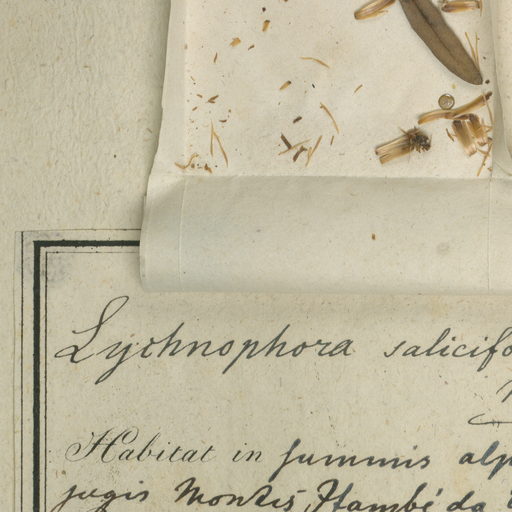 Lychnophora salicifo
Habitat in summis alp
jugis Montis Itambé da